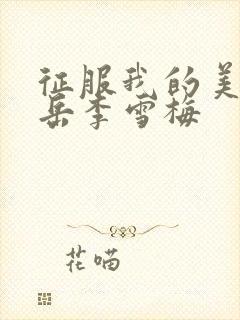 征服我的美
岳李雪梅
花喵